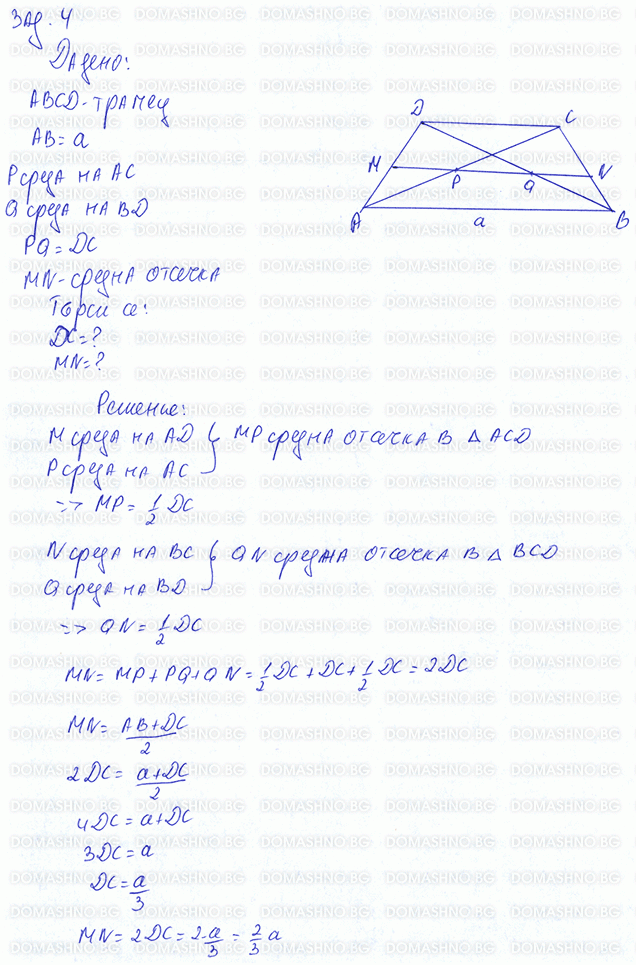 Зад. 4
Дадено:
ABCD - трапец
AB = a
P среда на AC
Q среда на BD
PQ = DC
MN - средна отсечка
Търси се:
DC = ?
MN = ?
D
C
M
P
Q
N
A
a
B
Решение:
M среда на AD } MP средна отсечка в △ ACD
P среда на AC
=> MP = 1/2 DC
N среда на BC } QN средна отсечка в △ BCD
Q среда на BD
=> QN = 1/2 DC
MN = MP + PQ + QN = 1/2 DC + DC + 1/2 DC = 2DC
MN = (AB + DC)/2
2DC = (a + DC)/2
4DC = a + DC
3DC = a
DC = a/3
MN = 2DC = 2·a/3 = 2/3 a
DOMASHNO.BG